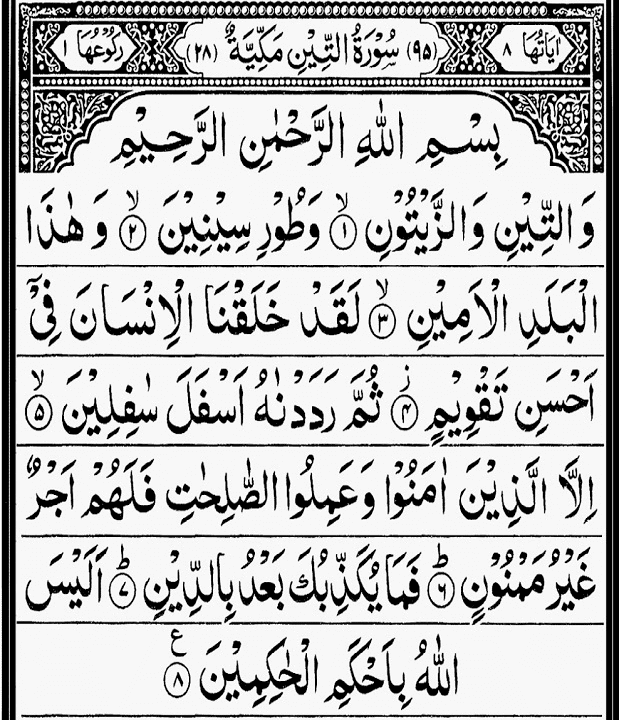 اٰیَاتُهَا ۸ (۹۵) سُوْرَةُ التِّيْنِ مَكِّيَّةٌ (۲۸) رُكُوْعُهَا ۱
بِسْمِ اللهِ الرَّحْمٰنِ الرَّحِيْمِ
وَالتِّيْنِ وَالزَّيْتُوْنِ ۙ﴿۱﴾ وَطُوْرِ سِيْنِيْنَ ۙ﴿۲﴾ وَهٰذَا
الْبَلَدِ الْاَمِيْنِ ۙ﴿۳﴾ لَقَدْ خَلَقْنَا الْاِنْسَانَ فِيْۤ
اَحْسَنِ تَقْوِيْمٍ ؗ﴿۴﴾ ثُمَّ رَدَدْنٰهُ اَسْفَلَ سٰفِلِيْنَ ۙ﴿۵﴾
اِلَّا الَّذِيْنَ اٰمَنُوْا وَعَمِلُوا الصّٰلِحٰتِ فَلَهُمْ اَجْرٌ
غَيْرُ مَمْنُوْنٍ ؕ﴿۶﴾ فَمَا يُكَذِّبُكَ بَعْدُ بِالدِّيْنِ ؕ﴿۷﴾ اَلَيْسَ
اللهُ بِاَحْكَمِ الْحٰكِمِيْنَ ﴿۸﴾ ع